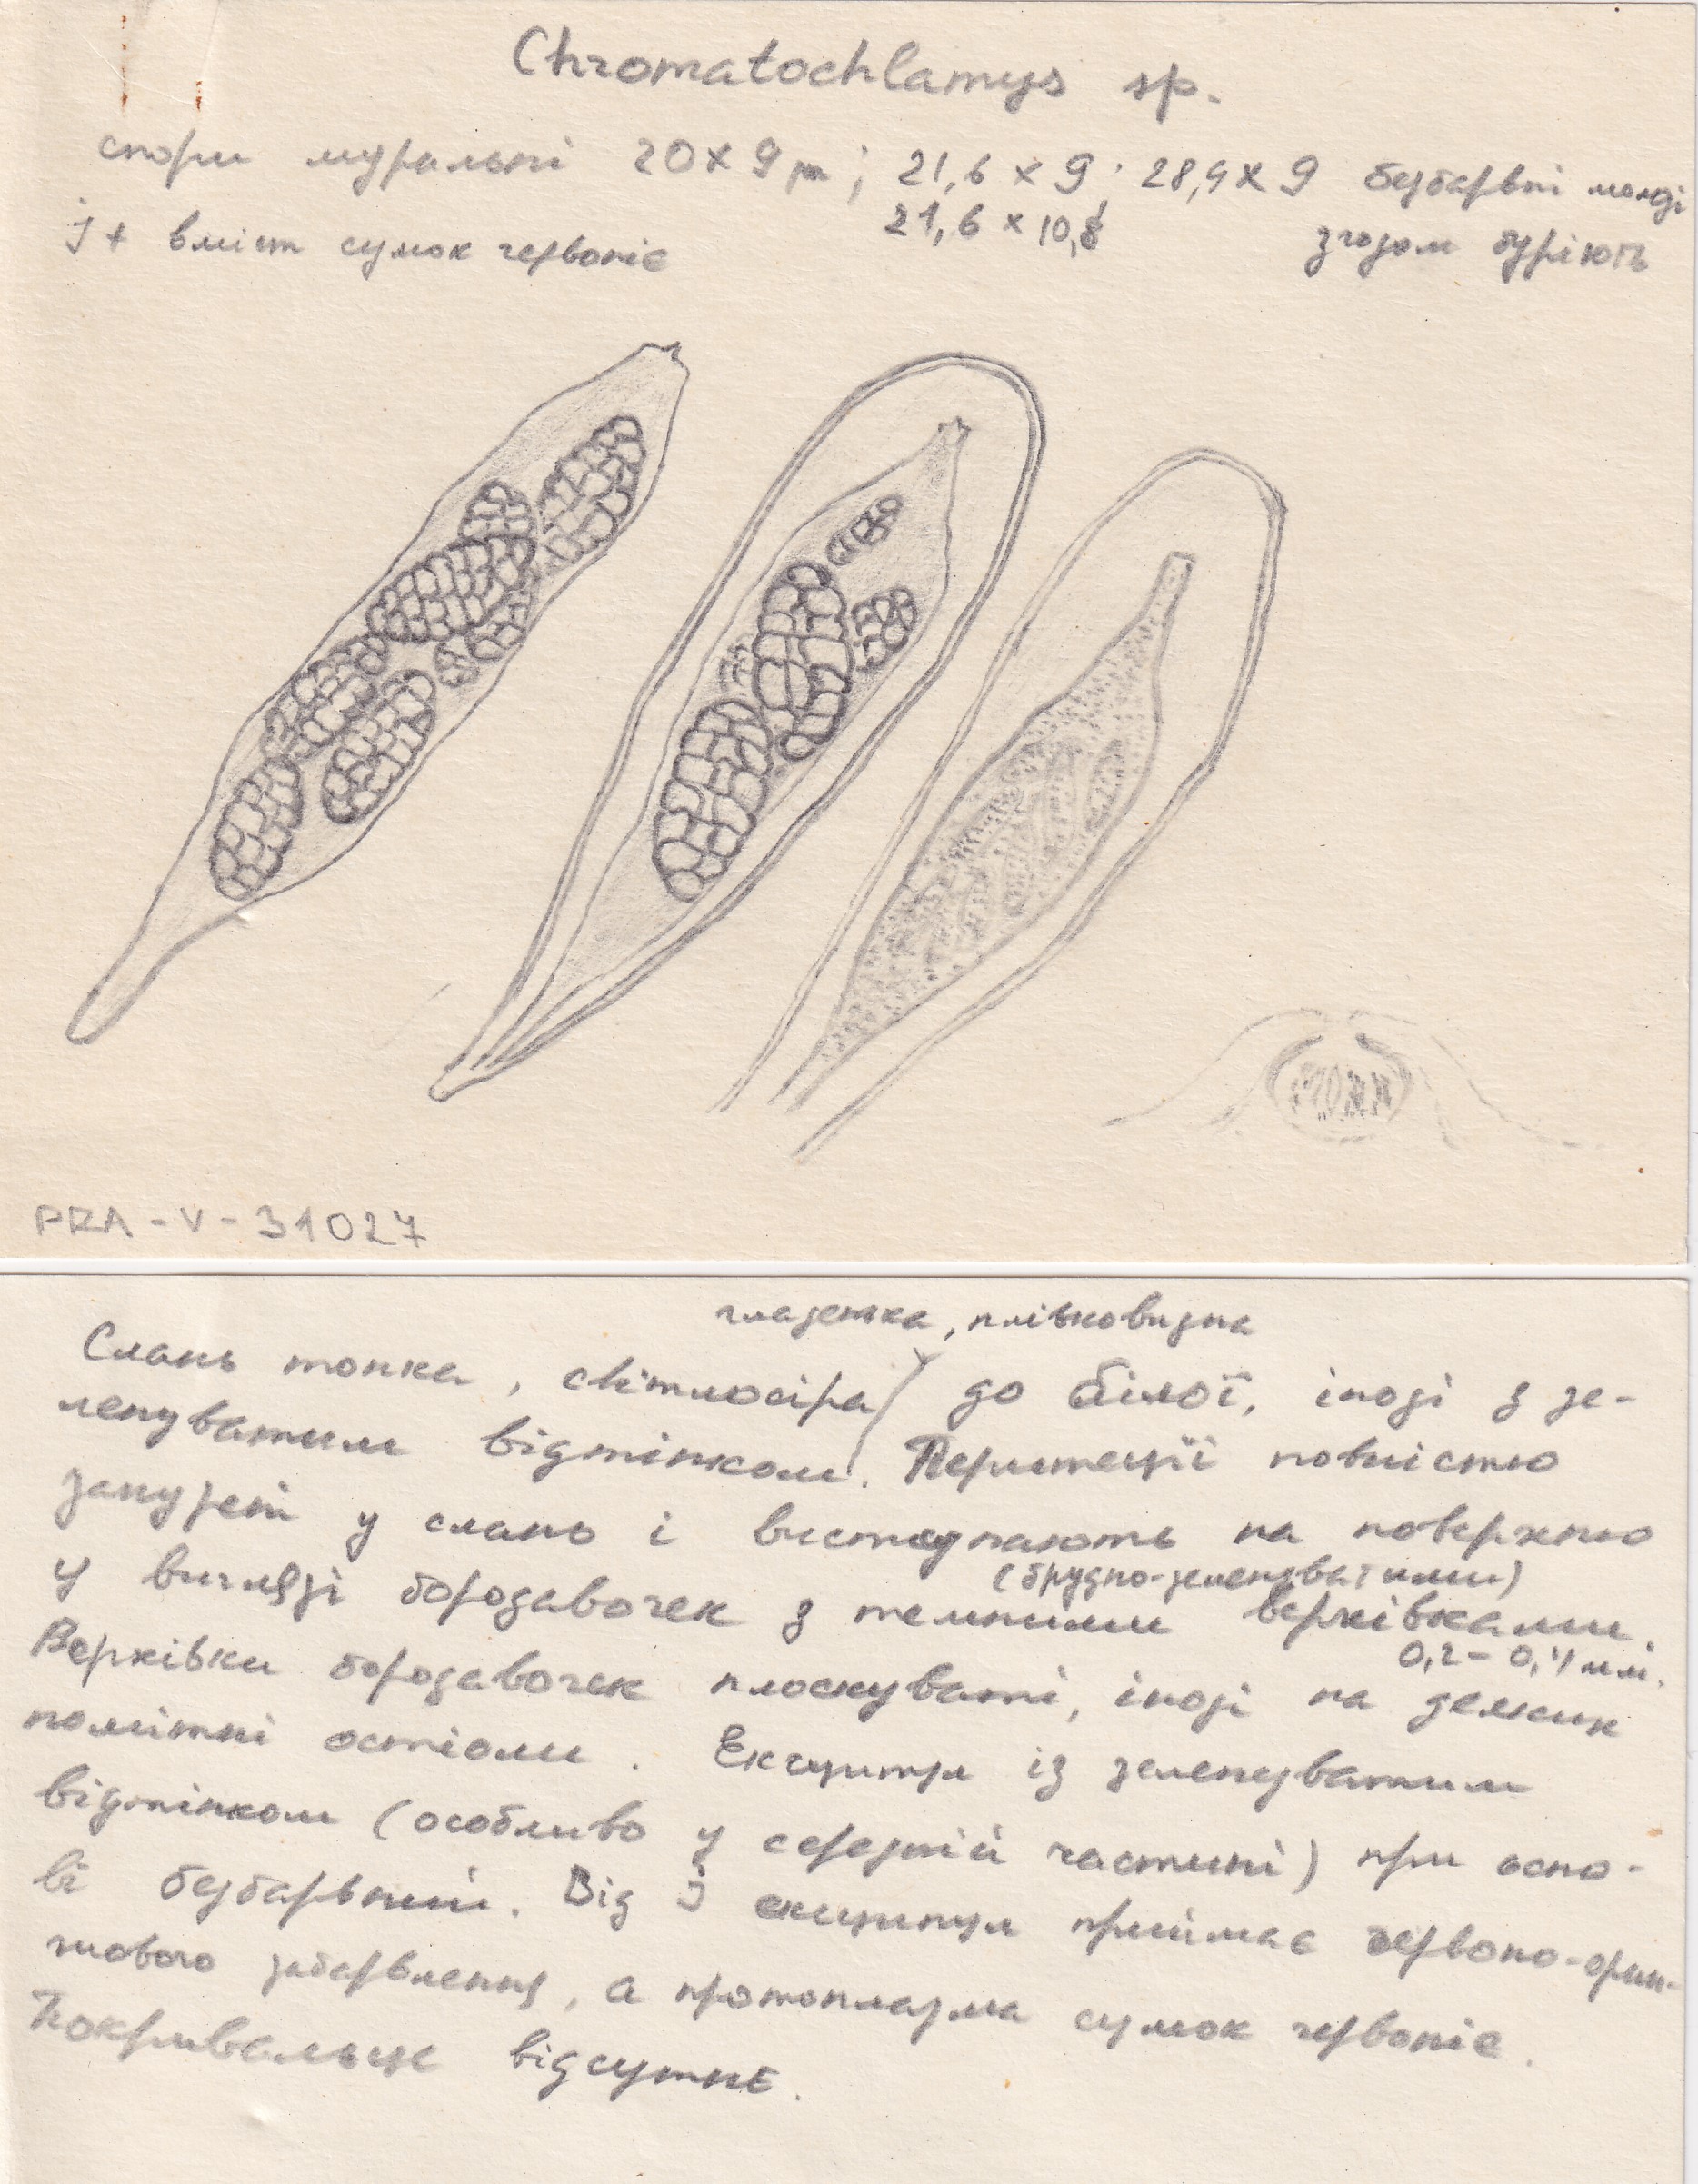 Chromatochlamys sp.
спори муральні 20 x 9 μm; 21,6 x 9; 28,9 x 9 безбарвні молоді
21,6 x 10,8 згодом буріють
J + вміст сумок червоніє
PRA - V - 31027
гладенька, плівковидна
Слань тонка, світлосіра до білої, іноді з зе-
ленуватим відтінком. Перитеції повністю
занурені у слань і виступають на поверхню
(брудно-зеленуватими)
у вигляді бородавочек з темними верхівками.
0,2 - 0,4 мм.
Верхівки бородавочек плоскуваті, іноді на деяких
помітні остіоли. Ексципул із зеленуватим
відтінком (особливо у середній частині) при осно-
ві безбарвний. Від J ексципул приймає червоно-оран-
жового забарвлення, а протоплазма сумок червоніє.
Покривальце відсутнє.